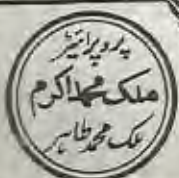 پروپرائیٹر
ملک محمد اکرم
ملک محمد طاہر